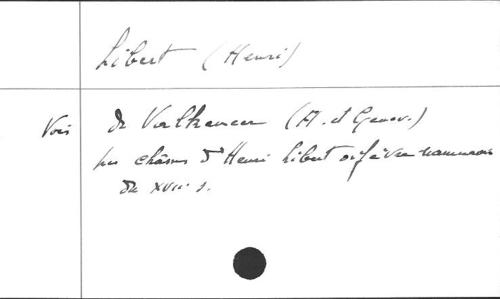 Libert (Henri)
Voir de Valkeneer (A. et Genev.)
les châsses d'Henri Libert orfèvre namurois
du XVII s.